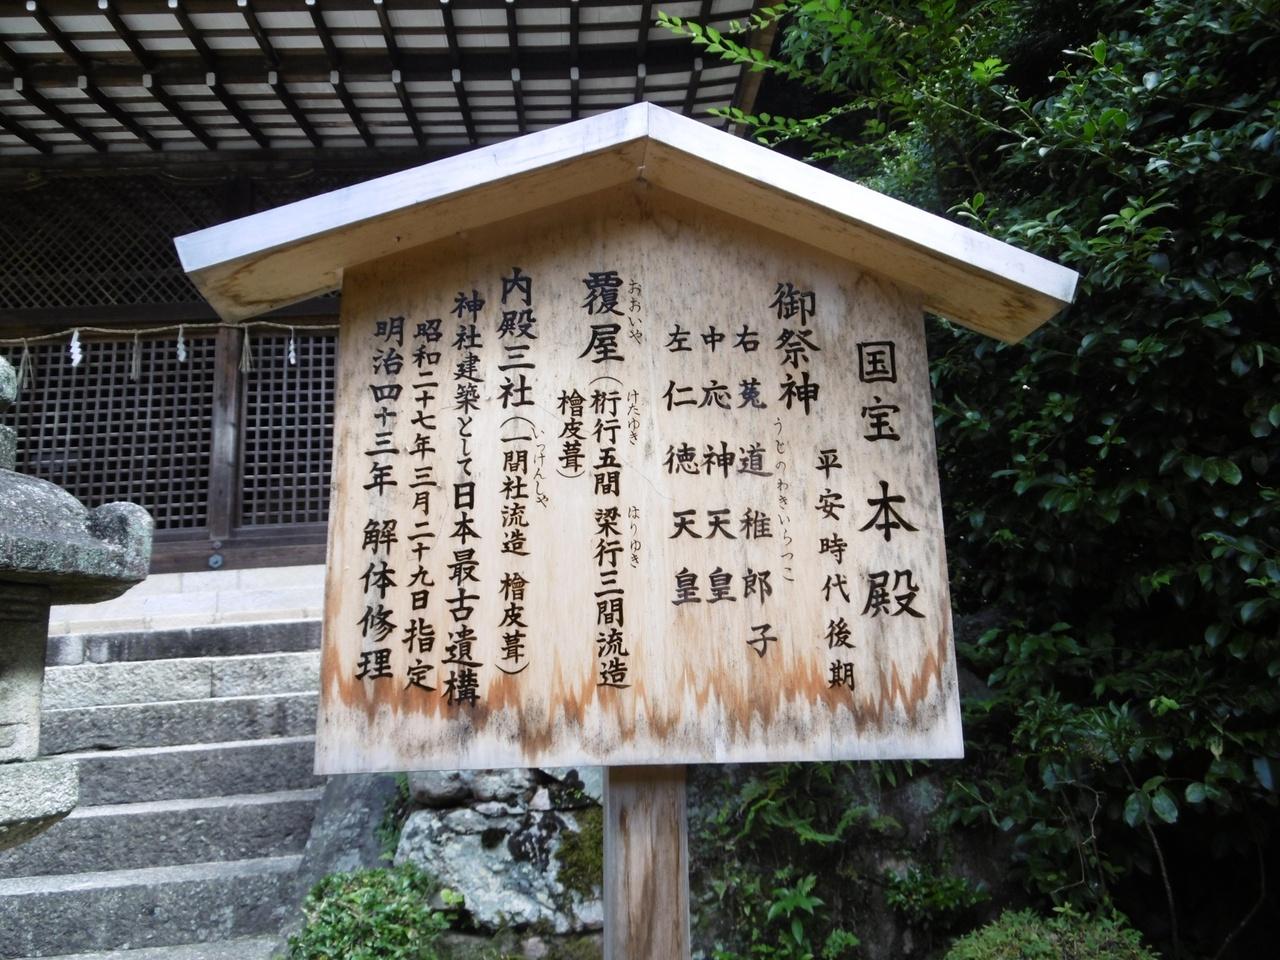 国宝 本殿
平安時代後期
御祭神
うとのわきいらつこ
右 菟道稚郎子
中 応神天皇
左 仁徳天皇
おおいや けたゆき はりゆき
覆屋（桁行五間 梁行三間流造
檜皮葺）
いっけんしゃ
内殿三社（一間社流造 檜皮葺）
神社建築として日本最古遺構
昭和二十七年三月二十九日指定
明治四十三年 解体修理